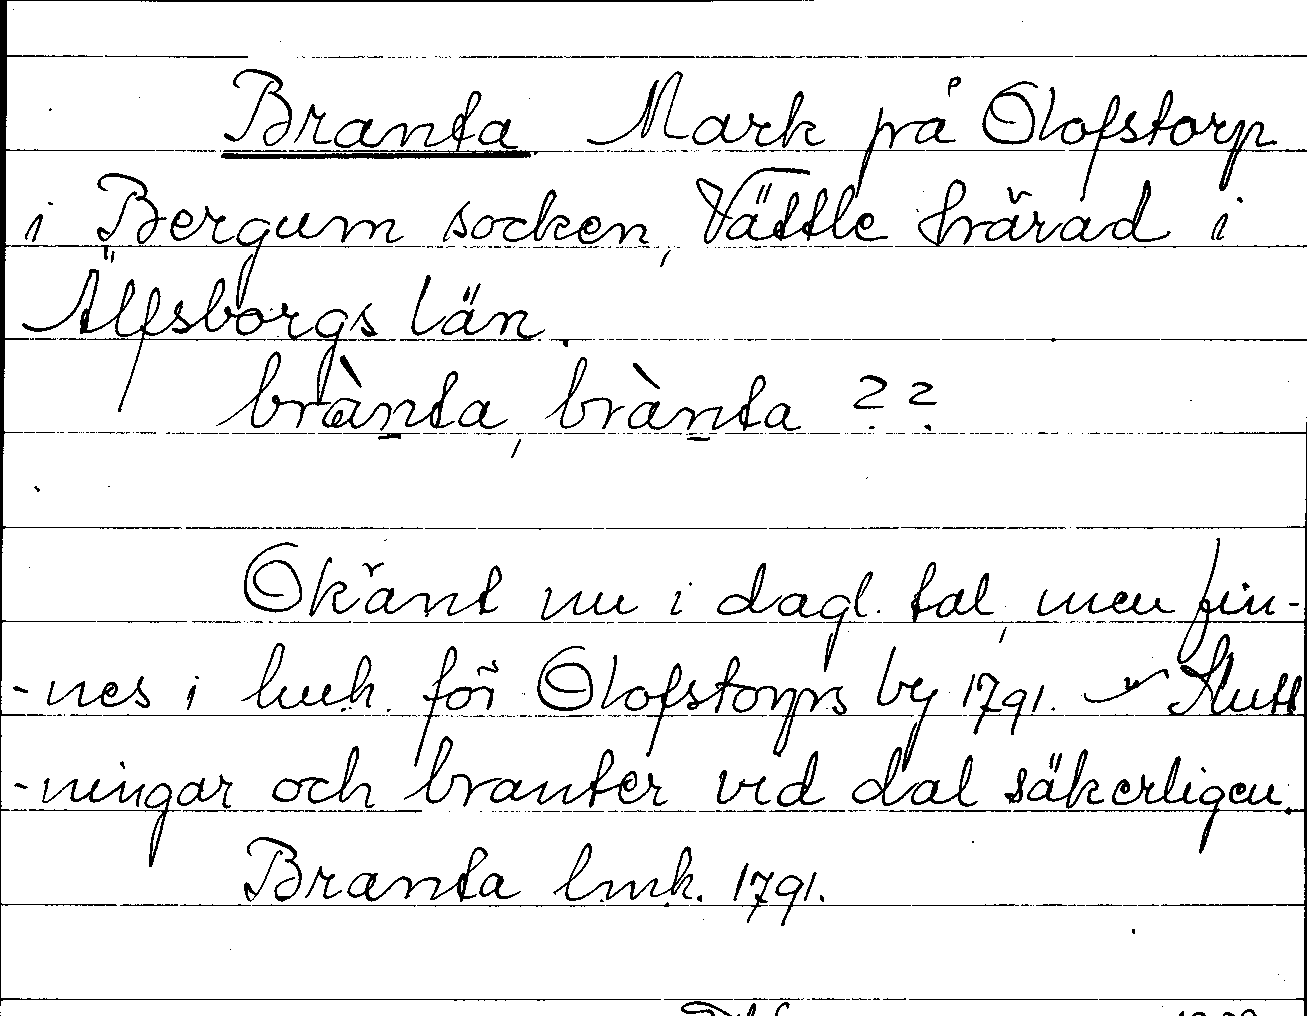 Branta Mark på Olofstorp
i Bergum socken, Vättle härad i
Älfsborgs län.
brànta, brànta ??
Okänt nu i dagl. tal, men fin-
-nes i lmk. för Olofstorps by 1791. Slutt
-ningar och branter vid dal säkerligen.
Branta lmk. 1791.